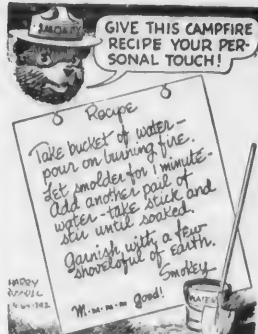 SMOKEY
GIVE THIS CAMPFIRE
RECIPE YOUR PER-
SONAL TOUCH!
Recipe
Take bucket of water—
pour on burning fire.
Let smolder for 1 minute-
Add another pail of
water - take stick and
stir until soaked.
Garnish with a few
shovelsful of earth.
Smokey
M-m-m-m good!
HARRY
WATER